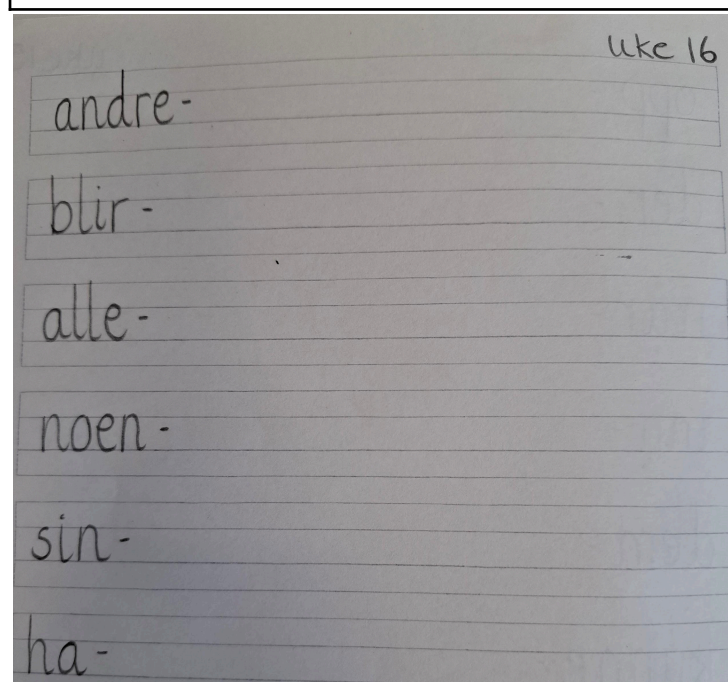 uke 16
andre-
blir-
alle-
noen-
sin-
ha-